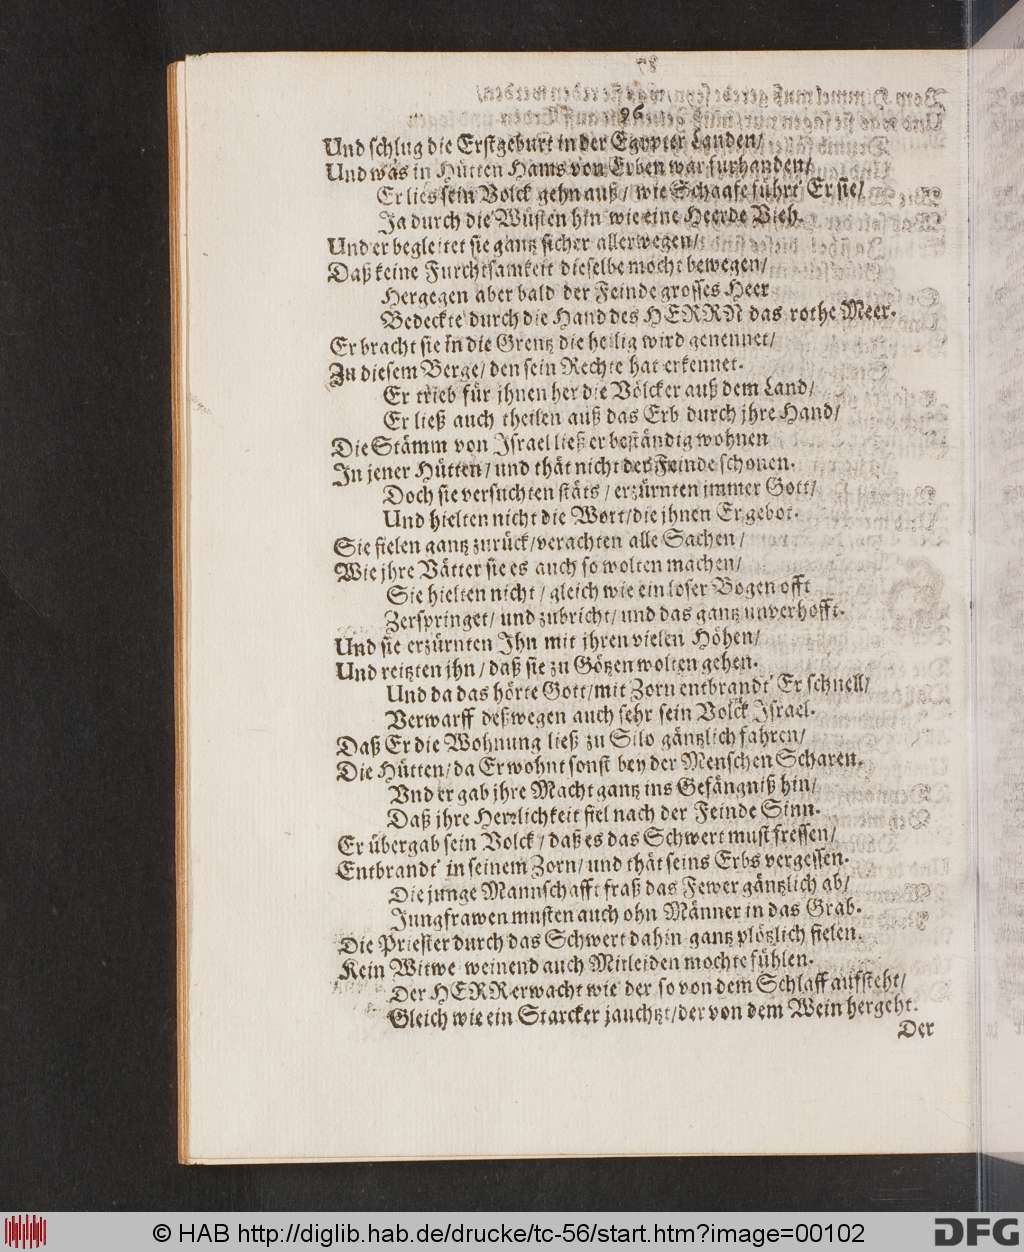 96
Und schlug die Erstgeburt in der Egypter Landen/
Und was in Hütten Hams von Erben war fürhanden/
Er lies sein Volck gehn auß / wie Schaafe führt' Er sie/
Ja durch die Wüsten hin wie eine Heerde Vieh.
Und er begleitet sie gantz sicher allerwegen/
Daß keine Furchtsamkeit dieselbe mocht bewegen/
Hergegen aber bald der Feinde grosses Heer
Bedeckte durch die Hand des HERRN das rothe Meer.
Er bracht sie in die Grentz die heilig wird genennet/
Zu diesem Berge/ den sein Rechte hat erkennet.
Er trieb für jhnen her die Völcker auß dem Land/
Er ließ auch theilen auß das Erb durch jhre Hand/
Die Stämm von Israel ließ er beständig wohnen
In jener Hütten/ und thät nicht der Feinde schonen.
Doch sie versuchten stäts / erzürnten jmmer Gott/
Und hielten nicht die Wort/ die jhnen Er gebot.
Sie fielen gantz zurück/ verachten alle Sachen/
Wie jhre Vätter sie es auch so wolten machen/
Sie hielten nicht / gleich wie ein loser Bogen offt
Zerspringet/ und zubricht/ und das gantz unverhofft.
Und sie erzürnten Ihn mit jhren vielen Höhen/
Und reitzten jhn / daß sie zu Götzen wolten gehen.
Und da das hörte Gott/ mit Zorn entbrandt' Er schnell/
Verwarff deßwegen auch sehr sein Volck Israel.
Daß Er die Wohnung ließ zu Silo gäntzlich fahren/
Die Hütten/ da Er wohnt sonst bey der Menschen Scharen.
Vnd er gab jhre Macht gantz ins Gefängniß hin/
Daß jhre Herrlichkeit fiel nach der Feinde Sinn.
Er übergab sein Volck / daß es das Schwert must fressen/
Entbrandt' in seinem Zorn/ und thät seins Erbs vergessen.
Die junge Mannschafft fraß das Fewer gäntzlich ab/
Jungfrawen musten auch ohn Männer in das Grab.
Die Priester durch das Schwert dahin gantz plötzlich fielen.
Kein Witwe weinend auch Mitleiden mochte fühlen.
Der HERR erwacht wie der so von dem Schlaff aufsteht/
Gleich wie ein Starcker jauchtzt/ der von dem Wein hergeht.
Der
© HAB http://diglib.hab.de/drucke/tc-56/start.htm?image=00102
DFG